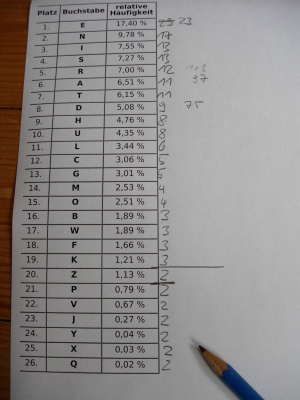 Platz Buchstabe relative Häufigkeit
1. E 17,40 % 23
2. N 9,78 % 17
3. I 7,55 % 13
4. S 7,27 % 13
5. R 7,00 % 12
6. A 6,51 % 11 97
7. T 6,15 % 11
8. D 5,08 % 9 75
9. H 4,76 % 8
10. U 4,35 % 8
11. L 3,44 % 6
12. C 3,06 % 5
13. G 3,01 % 5
14. M 2,53 % 4
15. O 2,51 % 4
16. B 1,89 % 3
17. W 1,89 % 3
18. F 1,66 % 3
19. K 1,21 % 3
20. Z 1,13 % 2
21. P 0,79 % 2
22. V 0,67 % 2
23. J 0,27 % 2
24. Y 0,04 % 2
25. X 0,03 % 2
26. Q 0,02 % 2